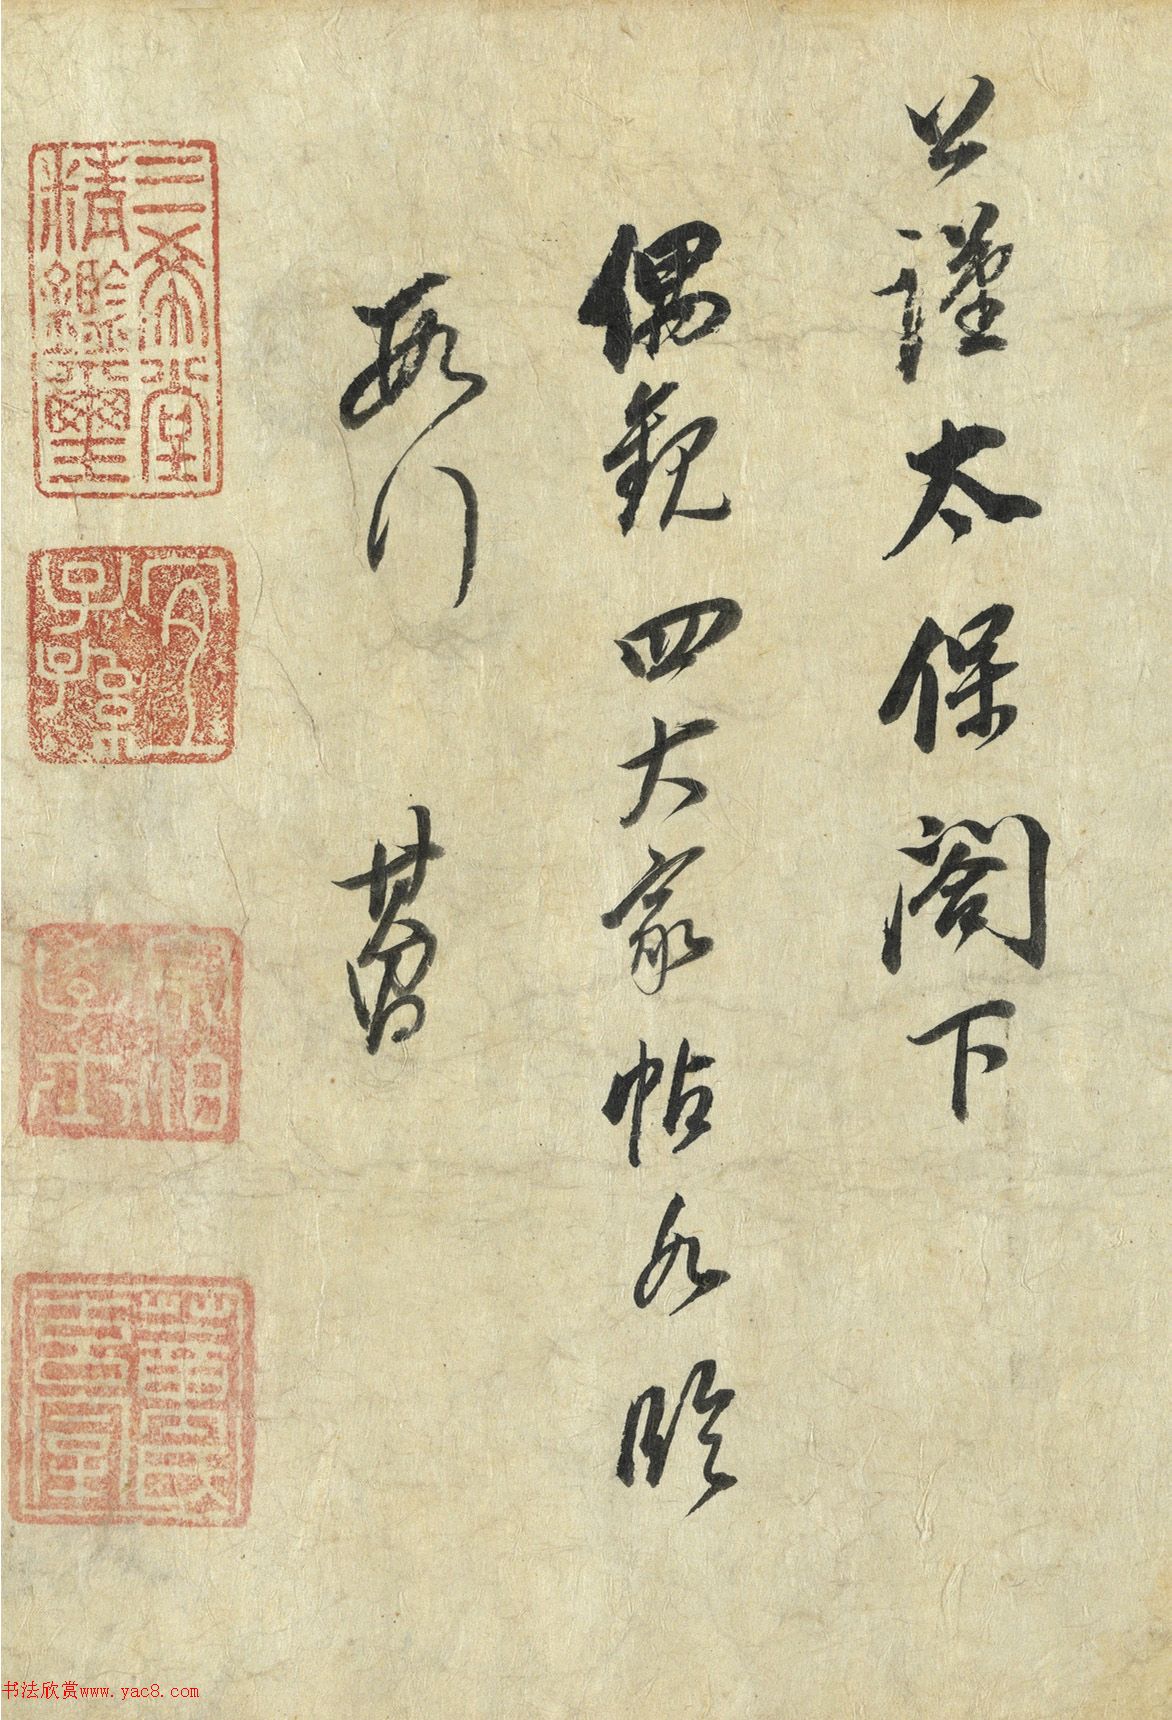 公謹太保閣下
偶觀四大家帖如臨
数行
三希堂
精鑑璽
宜
子孫
书法欣赏www.yac8.com